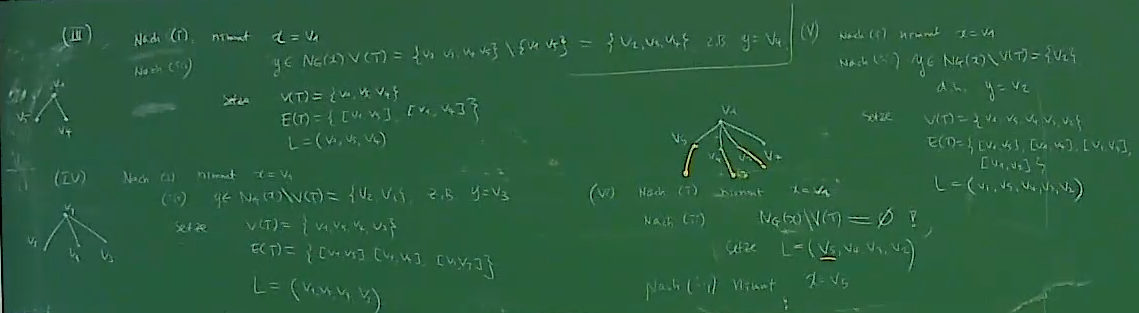 (III) Nach (i), nimmt x = v₁
Nach (ii) y ∈ N_G(x) \ V(T) = {v₂ v₃, v₄ v₅} \ {v₁ v₅} = {v₂, v₃, v₄} z.B. y = v₄.
Setze V(T) = {v₁, v₅ v₄}
E(T) = {[v₁ v₅], [v₁, v₄]}
L = (v₁, v₅, v₄)
v₁
v₅ v₄
(IV) Nach (i) nimmt x = v₁
(ii) y ∈ N_G(x) \ V(T) = {v₂ v₃}, z.B. y = v₃
Setze V(T) = {v₁, v₅, v₄, v₃}
E(T) = {[v₁ v₅], [v₁, v₄], [v₁ v₃]}
L = (v₁, v₅, v₄, v₃)
v₁
v₅ v₄ v₃
(V) Nach (i) nimmt x = v₁
Nach (ii) y ∈ N_G(x) \ V(T) = {v₂}
d.h. y = v₂
Setze V(T) = {v₁, v₅, v₄, v₃, v₂}
E(T) = {[v₁, v₅], [v₁, v₄], [v₁, v₃],
[v₁, v₂]}
L = (v₁, v₅, v₄, v₃, v₂)
v₁
v₅ v₄ v₃ v₂
(VI) Nach (i) nimmt x = v₁
Nach (ii) N_G(x) \ V(T) = ∅ !,
Setze L = (v₅, v₄, v₃, v₂)
Nach (i) nimmt x = v₅
⋮